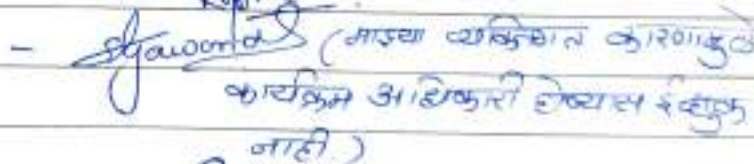 - (माझ्या व्यक्तिगत कारणामुळे
कार्यक्रम अधिकारी होण्यास ईच्छुक
नाही.)